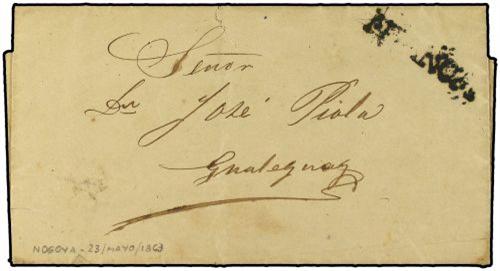 Señor
Dn José Piola
Gualeguay
NOGOYA - 23/MAYO/1863